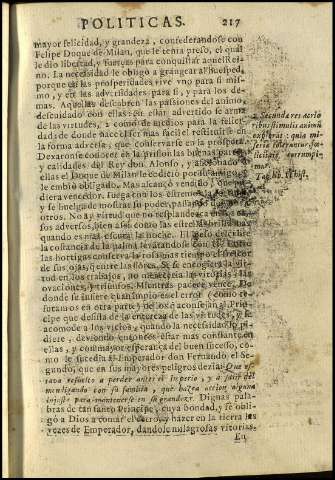 POLITICAS. 217
mayor felicidad, y grandeza, confederandose con
Felipe Duque de Milan, que le tenia preso, el qual
le dio libertad, y fuerças para conquistar aquel Rei-
no. La necessidad le obligò a grangear al huesped,
porque en las prosperidades vive vno para si mis-
mo, y en las adversidades para si, y para los de-
mas. Aquellas descubren las passiones del animo,
descuidado con ellas: en estas advertido se arma
de las virtudes, como de medios para la felici-
dad de donde nace el ser mas facil el restituirse en
la forma adversa, que conservarse en la prospera
Dexaronse conocer en la prision las buenas partes,
y calidades del Rey Don Alonso, y aficionado a
ellas el Duque de Milan le codiciò por amigo, y
le embiò obligado. Mas alcançò vencido, que pu-
diera vencedor. Juega con los estremos la fortuna,
y se huelga de mostrar su poder, passando de vnos a
otros. No ay virtud que no resplandezca en los ca-
sos adversos, bien assi como las estrellas brillan mas
quando es mas escura la noche. El peso descubre
la costancia de la palma, levantandose con el. Entre
las hortigas conserva la rosa mas tiempo el frescor
de sus ojas, que entre las flores. Si se encogiera la vir-
tud en los trabajos, no mereciera las vitorias, las
ovaciones, y triunfos. Mientras padece vence. De
donde se infiere quan impio es el error (como re-
futamos en otra parte) de los que aconsejan al Prin-
cipe que desista de la entereza de las virtudes, y se
acomode a los vicios, quando la necessidad lo pi-
diere, deviendo entonces estar mas constante en
ellas, y con mayor esperança del buen sucesso, co-
mo le sucedia al Emperador don Fernando el Se-
gundo, que en sus mayores peligros dezia: Que es-
tava resuelto a perder antes el Imperio, y a salir del
mendigando con su familia, que hazer accion alguna
injusta para mantenerse en su grandeza. Dignas pala-
bras de tan santo Principe, cuya bondad, y fè obli-
gò a Dios a tomar el cetro, y hazer en la tierra las
vezes de Emperador, dandole milagrosas vitorias.
En
2 Secundæ res acrio
ribus stimulis animũ
explorãt: quia mi-
seriæ tolerantur, fœ-
licitate corrumpi-
mur.
Tac. lib. 1. hist.